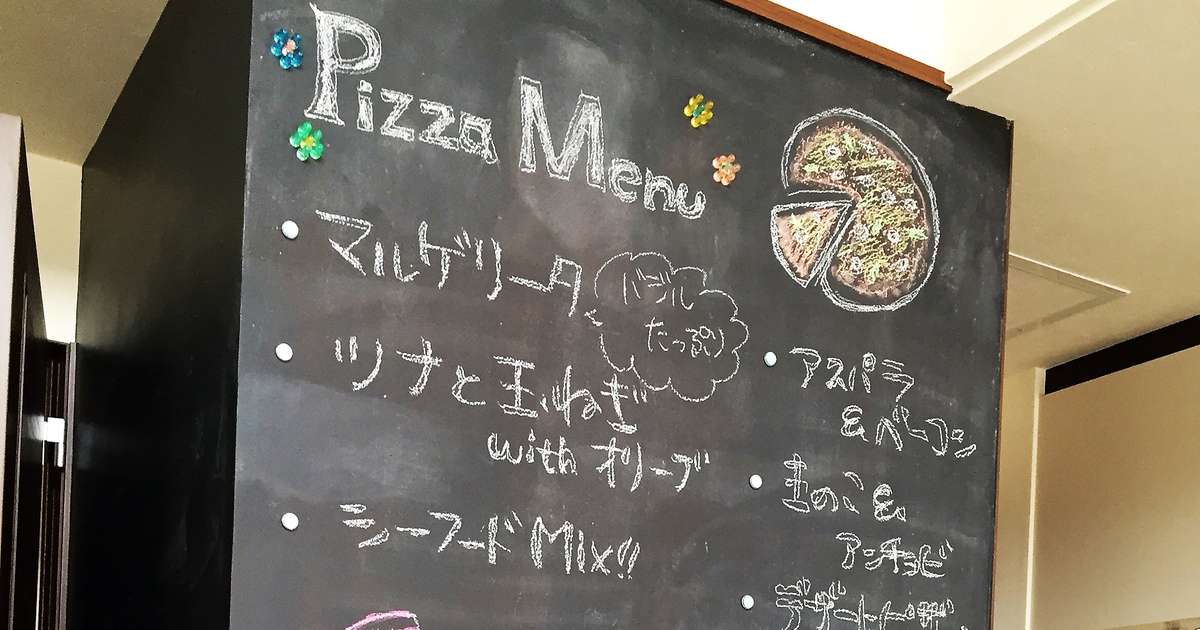 Pizza Menu
マルゲリータ
バジル
たっぷり
ツナと玉ねぎ
with オリーブ
シーフードMix!!
アスパラ
&ベーコン
きのこ&
アンチョビ
デザートピザ